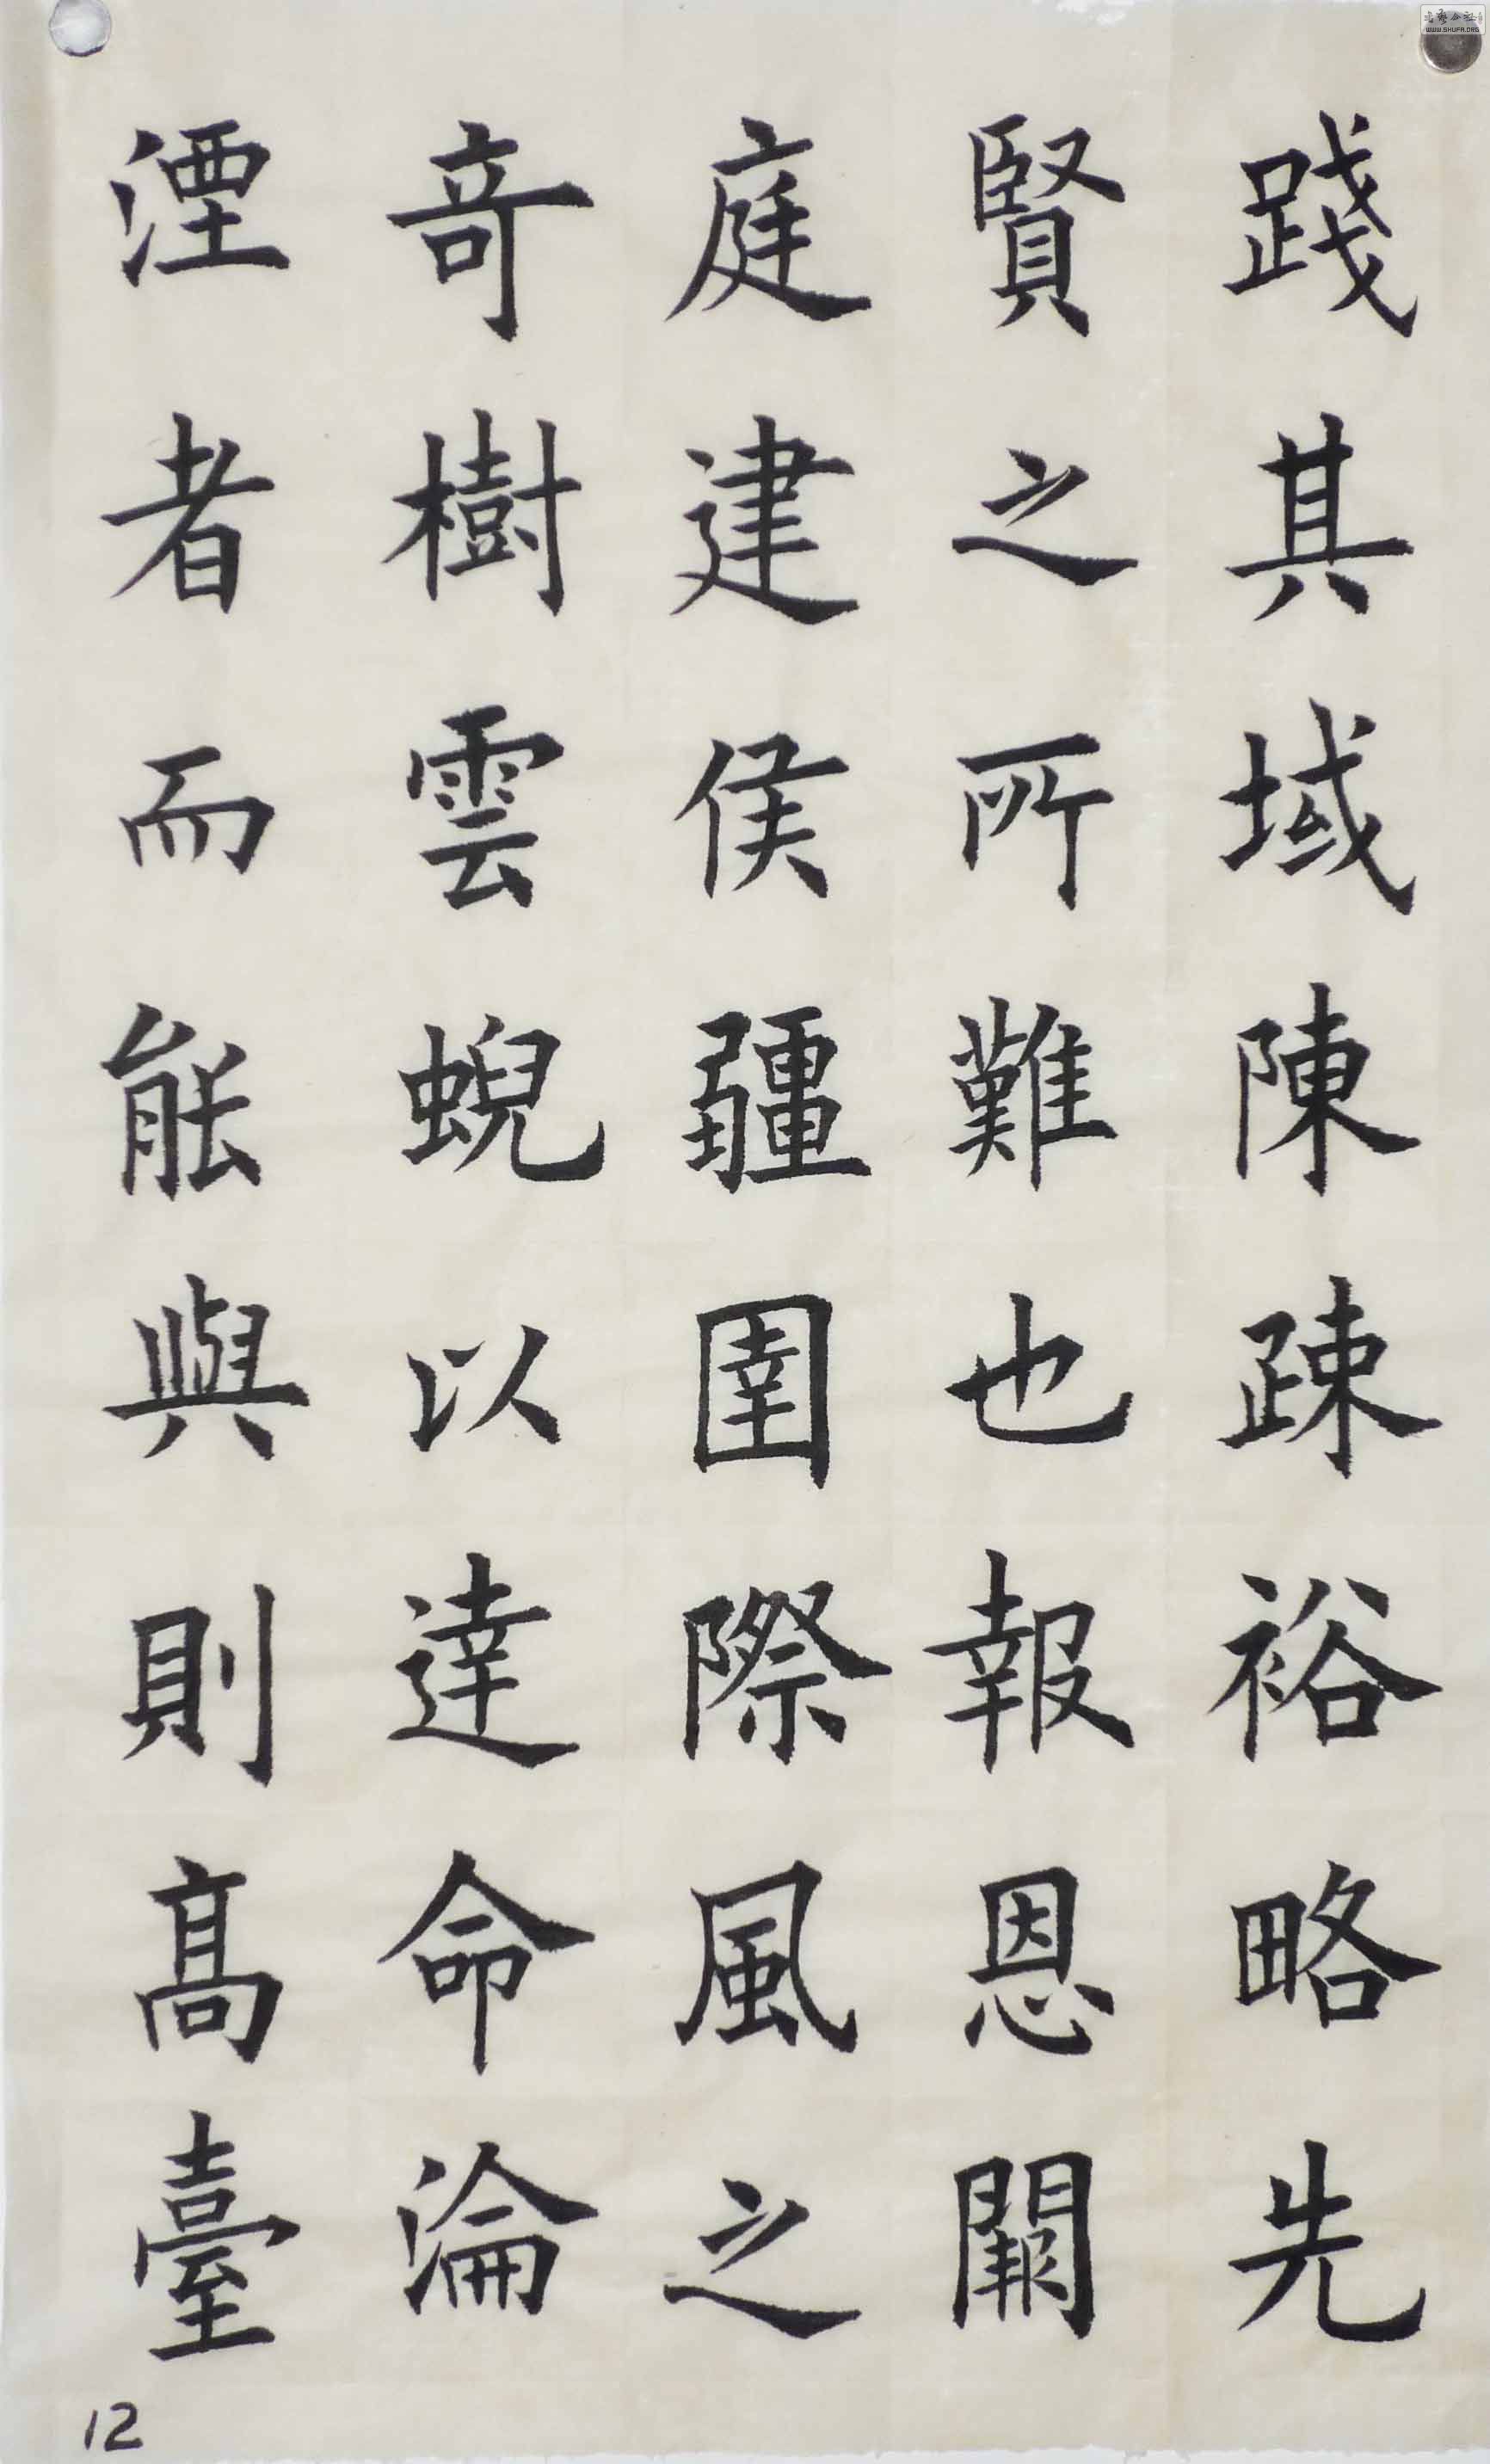 踐其域陳疎裕略先
賢之所難也報恩闕
庭建侯疆圉際風之
奇樹雲蜺以達命淪
湮者而能與則高臺
12
WWW.SHUFA.ORG